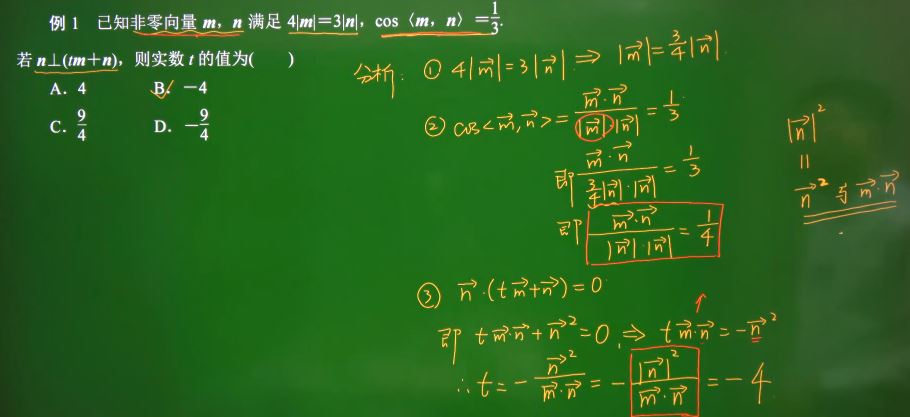 例1 已知非零向量 m，n 满足 4|m|=3|n|，cos〈m，n〉=1/3.
若 n⊥(tm+n)，则实数 t 的值为( )
A．4 B．－4
C．9/4 D．－9/4
分析: ① 4|m⃗|=3|n⃗| ⇒ |m⃗|=3/4|n⃗|.
② cos<m⃗,n⃗>= m⃗·n⃗/|m⃗|·|n⃗| = 1/3
即 m⃗·n⃗/(3/4|n⃗|·|n⃗|) = 1/3
即 m⃗·n⃗/|n⃗|·|n⃗| = 1/4
③ n⃗·(tm⃗+n⃗)=0
即 tm⃗·n⃗+n⃗²=0 ⇒ tm⃗·n⃗=-n⃗²
∴t=- n⃗²/m⃗·n⃗ = - |n⃗|²/m⃗·n⃗ =-4
|n⃗|²
=
n⃗² 与 m⃗·n⃗